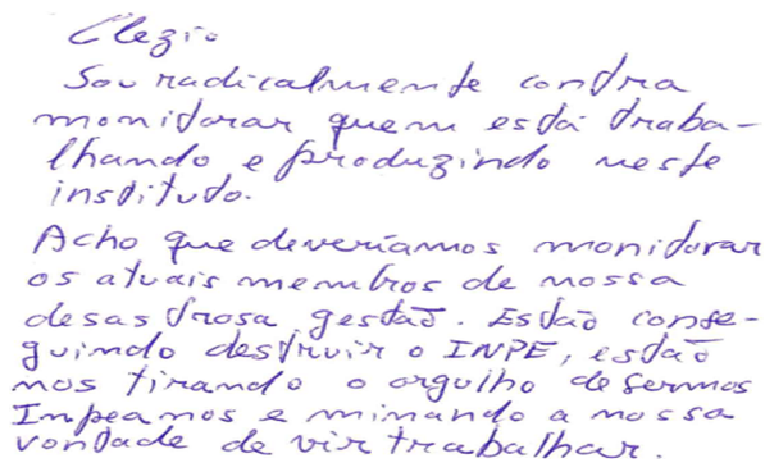 Clezio
Sou radicalmente contra
monitorar quem está traba-
lhando e produzindo neste
instituto.
Acho que deveríamos monitorar
os atuais membros de nossa
desastrosa gestão. Estão conse-
guindo destruir o INPE, estão
nos tirando o orgulho de sermos
Inpeanos e minando a nossa
vontade de vir trabalhar.